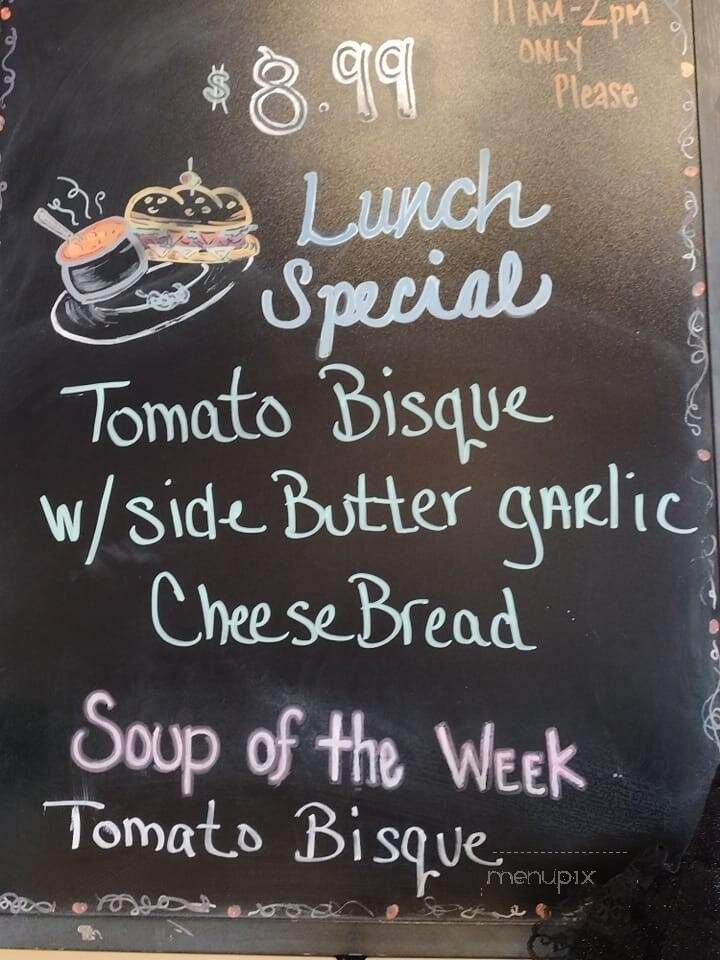 11AM-2pm
ONLY
Please
$8.99
Lunch
Special
Tomato Bisque
w/side Butter gARlic
Cheese Bread
Soup of the WEEK
Tomato Bisque
menupix